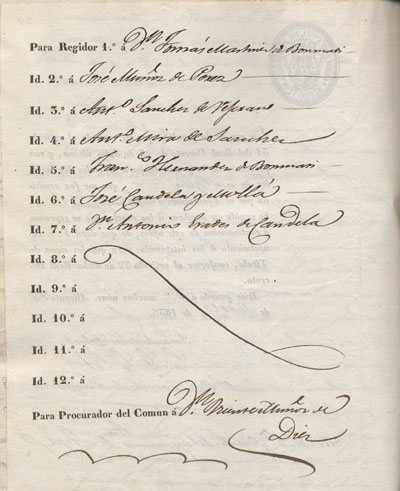 Para Regidor 1.º á Dn Tomás Martinez de Bonmati
Id. 2.º á José Muñoz de Perez
Id. 3.º á Antº Sanchez de
Id. 4.º á Antº Mira de Sanchez
Id. 5.º á Francº Hernandez de Bonmati
Id. 6.º á José Candela y Mullá
Id. 7.º á Dn Antonio Erades de Candela
Id. 8.º á
Id. 9.º á
Id. 10.º á
Id. 11.º á
Id. 12.º á
Para Procurador del Comun á Dn Muñoz de
Diez